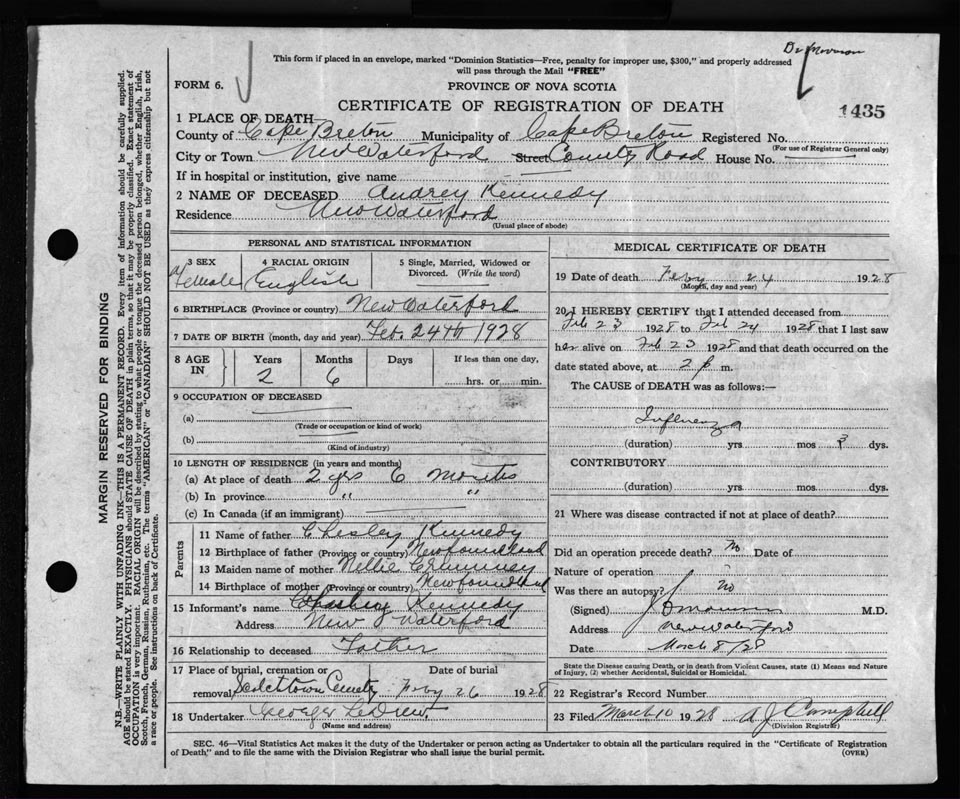 Dr Morrison
This form if placed in an envelope, marked "Dominion Statistics—Free, penalty for improper use, $300," and properly addressed
will pass through the Mail "FREE"
FORM 6.
PROVINCE OF NOVA SCOTIA
CERTIFICATE OF REGISTRATION OF DEATH
1435
1 PLACE OF DEATH—
County of Cape Breton Municipality of Cape Breton Registered No.
(For use of Registrar General only)
City or Town New Waterford Street County Road House No.
If in hospital or institution, give name
2 NAME OF DECEASED Audrey Kennedy
Residence New Waterford
(Usual place of abode)
MARGIN RESERVED FOR BINDING
N.B.—WRITE PLAINLY WITH UNFADING INK—THIS IS A PERMANENT RECORD. Every item of information should be carefully supplied.
AGE should be stated EXACTLY. PHYSICIANS should STATE CAUSE OF DEATH in plain terms, so that it may be properly classified. Exact statement of
OCCUPATION is very important. RACIAL ORIGIN will be described by stating to what people or tongue the deceased person belonged, whether English, Irish,
Scotch, French, German, Russian, Ruthenian, etc. The terms "AMERICAN" or "CANADIAN" SHOULD NOT BE USED as they express citizenship but not
a race or people. See instructions on back of Certificate.
PERSONAL AND STATISTICAL INFORMATION
3 SEX
Female
4 RACIAL ORIGIN
English
5 Single, Married, Widowed or
Divorced. (Write the word)
6 BIRTHPLACE (Province or country) New Waterford
7 DATE OF BIRTH (month, day and year) Feb. 24th 1928
8 AGE IN
Years 2
Months 6
Days
If less than one day,
hrs. or min.
9 OCCUPATION OF DECEASED
(a)
(Trade or occupation or kind of work)
(b)
(Kind of industry)
10 LENGTH OF RESIDENCE (in years and months)
(a) At place of death 2 yrs 6 months
(b) In province " "
(c) In Canada (if an immigrant)
Parents
11 Name of father Chesley Kennedy
12 Birthplace of father (Province or country) Newfoundland
13 Maiden name of mother Nellie
14 Birthplace of mother (Province or country) Newfoundland
15 Informant's name Kennedy
Address New Waterford
16 Relationship to deceased Father
17 Place of burial, cremation or
removal
Date of burial
Feby 26 1928
18 Undertaker George LeDrew.
(Name and address)
MEDICAL CERTIFICATE OF DEATH
19 Date of death Feby 24 1928
(Month, day and year)
20 I HEREBY CERTIFY that I attended deceased from
Feb 23 1928 to Feb 24 1928 that I last saw
her alive on Feb 23 1928 and that death occurred on the
date stated above, at 2 p m.
The CAUSE of DEATH was as follows:—
Influenza
(duration) yrs mos 3 dys.
CONTRIBUTORY
(duration) yrs mos dys.
21 Where was disease contracted if not at place of death?
Did an operation precede death? No Date of
Nature of operation
Was there an autopsy? No
(Signed) M.D.
Address New Waterford
Date March 8/28
State the Disease causing Death, or in death from Violent Causes, state (1) Means and Nature
of Injury, (2) whether Accidental, Suicidal or Homicidal.
22 Registrar's Record Number
23 Filed March 10 1928 A J Campbell
(Division Registrar)
SEC. 46—Vital Statistics Act makes it the duty of the Undertaker or person acting as Undertaker to obtain all the particulars required in the "Certificate of Registration
of Death" and to file the same with the Division Registrar who shall issue the burial permit.
(OVER)